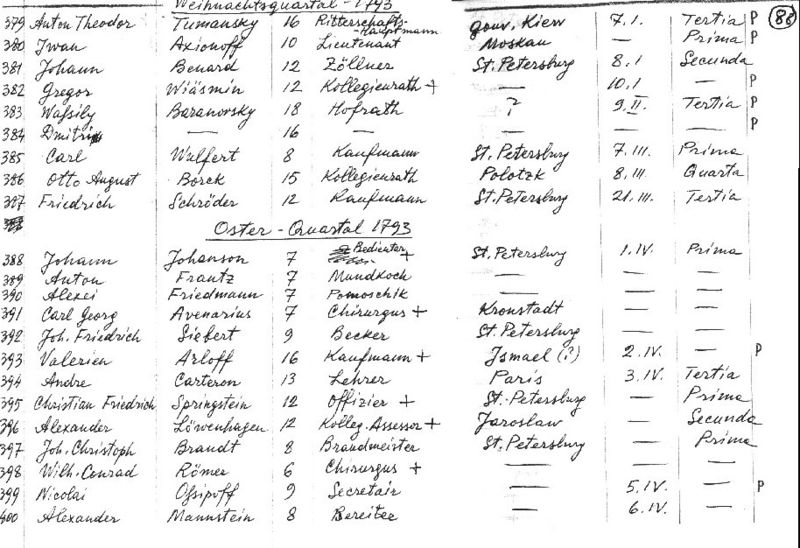 Weihnachtsquartal - 1793
379 Anton Theodor Tumansky 16 Ritterschafts-Hauptmann gouv. Kiew 7.1. Tertia P 88
380 Iwan Axionoff 10 Lieutenant Moskau — Prima P
381 Johann Benard 12 Zöllner St. Petersburg 8.1 Secunda
382 Gregor Wiäsmin 12 Kollegienrath + — 10.1 — P
383 Wassily Baranovsky 18 Hofrath ? 9.II. Tertia P
384 Dmitri — 16 — — — — P
385 Carl Wulfert 8 Kaufmann St. Petersburg 7.III. Prima
386 Otto August Borek 15 Kollegienrath Polotzk 8.III Quarta
387 Friedrich Schröder 12 Kaufmann St. Petersburg 21.III. Tertia
Oster-Quartal 1793
388 Johann Johanson 7 Bedienter + St. Petersburg 1.IV. Prima
389 Anton Frantz 7 Mundkoch — — —
390 Alexei Friedmann 7 Pomoschik — — —
391 Carl Georg Avenarius 7 Chirurgus + Kronstadt — —
392 Joh. Friedrich Siebert 9 Becker St. Petersburg — —
393 Valerien Arloff 16 Kaufmann + Jsmael (?) 2.IV. — P
394 Andre Carteron 13 Lehrer Paris 3.IV. Tertia
395 Christian Friedrich Springstein 12 Offizier + St. Petersburg — Prima
396 Alexander Löwenhagen 12 Kolleg. Assessor + Jaroslaw — Secunda
397 Joh. Christoph Brandt 8 Brandmeister St. Petersburg — Prima
398 Wilh. Conrad Römer 6 Chirurgus + — — —
399 Nicolai Ossipoff 9 Secretair — 5.IV. — P
400 Alexander Mannstein 8 Bereiter — 6.IV. —